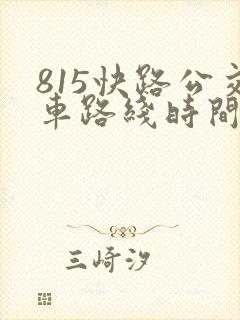 815快路公交
车路綫時間
三崎汐